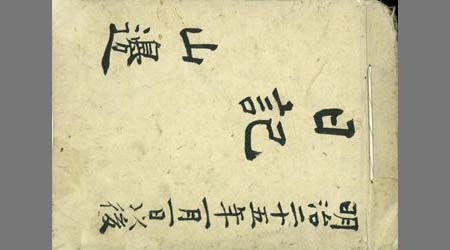 明治二十五年一月一日以後
日記
山邊